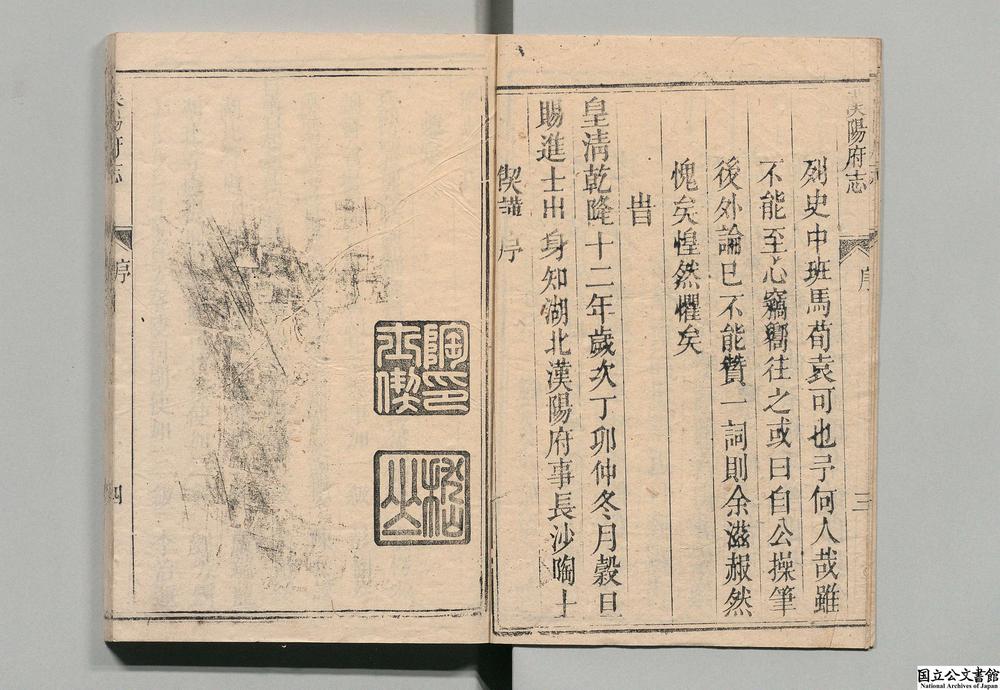 漢陽府志
序
三
列史中班馬荀袁可也予何人哉雖
不能至心竊嚮往之或曰自公操筆
後外論已不能贊一詞則余滋赧然
愧矣惶然懼矣
旹
皇清乾隆十二年歲次丁卯仲冬月穀旦
賜進士出身知湖北漢陽府事長沙陶士
偰譔序
陶印
士偰
漢陽府志
序
四
国立公文書館
National Archives of Japan